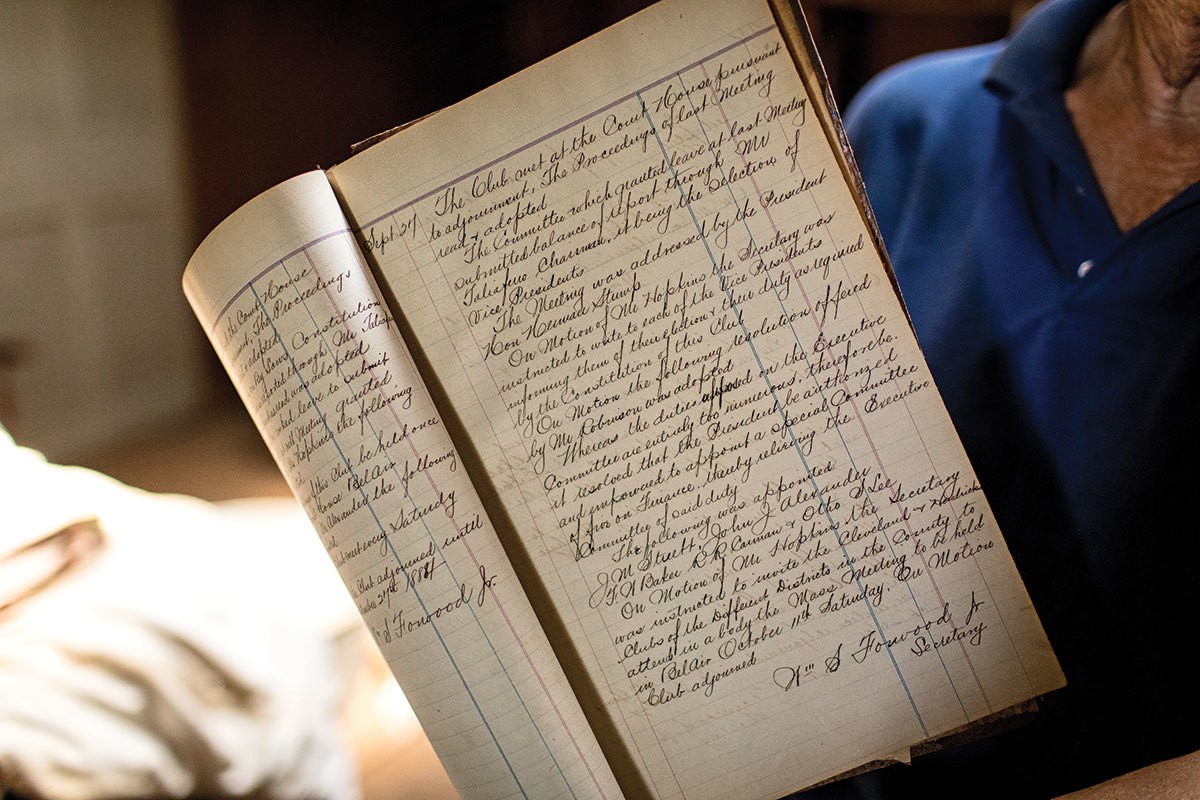 the Court House
The Proceedings
adopted
By Laws Constitution
through Mr
was adopted
leave to submit
Meeting granted
Hopkins the following
of this Club be held once
House Bel Air
Alexander the following
meet every Saturday
Club adjourned until
27th 1884
S Forwood Jr
Sept 27 The Club met at the Court House pursuant
to adjournment, The Proceedings of last Meeting
read & adopted
The Committee which granted leave at last Meeting
submitted balance of report through Mr
Taliaferro Chairman, it being the Selection of
Vice Presidents
The Meeting was addressed by the President
Hon Herman Stump
On Motion of Mr Hopkins the Secretary was
instructed to write to each of the Vice Presidents
informing them of their election & their duty as required
by the Constitution of this Club
On Motion the following resolution offered
by Mr Robinson was adopted
Whereas the duties imposed on the Executive
Committee are entirely too numerous, therefore be
it resolved that the President be authorized
and empowered to appoint a Special Committee
of five on Finance, thereby relieving the Executive
Committee of said duty
The following was appointed
J. M Street, John J. Alexander
F. W Baker R R Carman & Otho S Lee
On Motion of Mr Hopkins the Secretary
was instructed to invite the Cleveland & Hendricks
Clubs of the Different Districts in the County to
attend in a body the Mass Meeting to be held
in Bel Air October 11th Saturday. On Motion
Club adjourned
Wm S Forwood Jr
Secretary